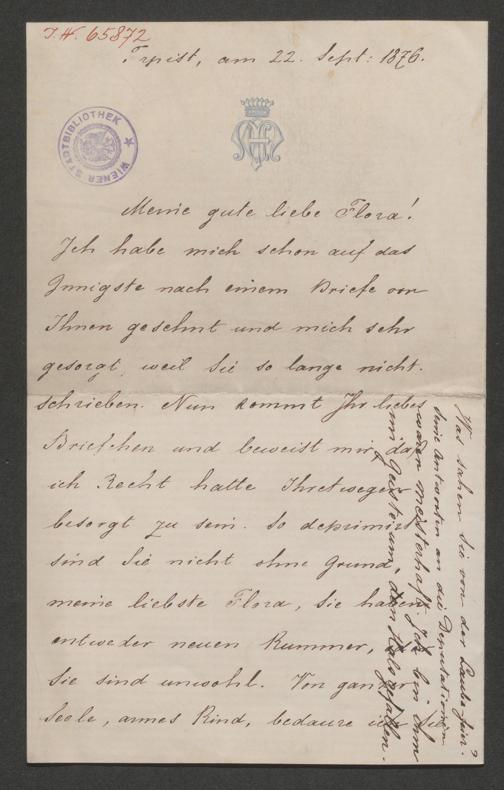 J.N. 65872
Trpist, am 22. Sept: 1876.
WIENER STADTBIBLIOTHEK
Meine gute liebe Flora!
Ich habe mich schon auf das
Innigste nach einem Briefe von
Ihnen gesehnt und mich sehr
gesorgt, weil Sie so lange nicht
schrieben. Nun kommt Ihr liebes
Briefchen und beweist mir, daß
ich Recht hatte Ihretwegen
besorgt zu sein. So deprimirt
sind Sie nicht ohne Grund,
meine liebste Flora, Sie haben
entweder neuen Kummer,
Sie sind unwohl. Von ganzer
Seele, armes Kind, bedaure ich Sie
Was sahen Sie von der Laubefeier?
Seine Antworten an die Deputationen
waren meisterhaft. Ich bin ihm
im Geiste um den Hals gefallen.